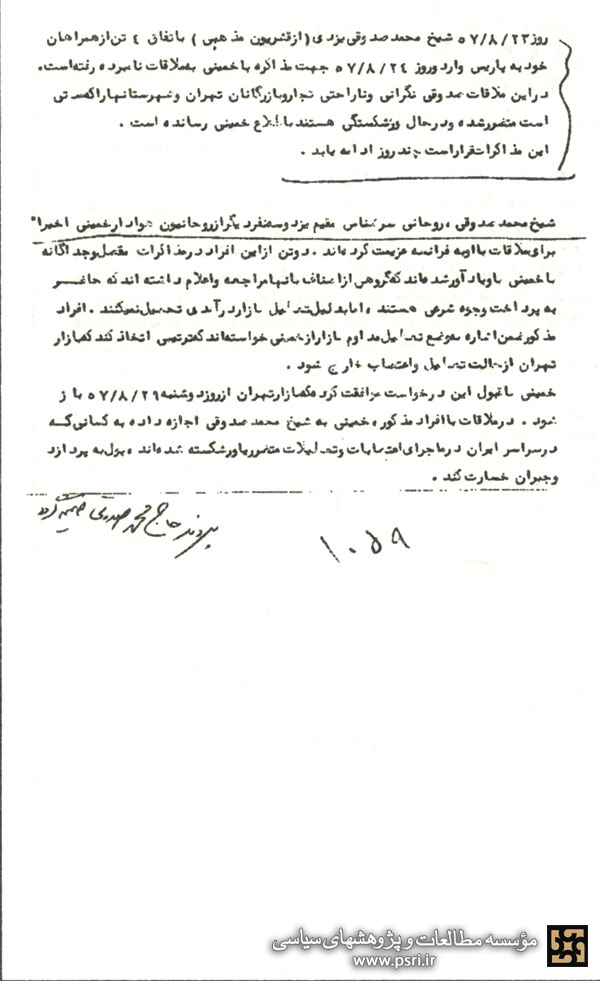 روز ۵۷/۸/۲۳ شیخ محمد صدوقی یزدی (از قشریون مذهبی) باتفاق ٤ تن از همراهان
خود به پاریس وارد و روز ۵۷/۸/۲٤ جهت مذاکره با خمینی به ملاقات نامبرده رفته است.
در این ملاقات صدوقی نگرانی و ناراحتی تجار و بازرگانان تهران و شهرستانها را که مدتی
است متضرر شده و در حال ورشکستگی هستند با طلاع خمینی رسانده است.
این مذاکرات قرار است چند روز ادامه یابد.
شیخ محمد صدوقی، روحانی سرشناس مقیم یزد و سه نفر دیگر از روحانیون هوادار خمینی اخیرا"
برای ملاقات با او به فرانسه عزیمت کرده اند. دو تن از این افراد در مذاکرات مفصل و جداگانه
با خمینی باو یادآور شده اند که گروهی از اصناف بانها مراجعه و اعلام داشته اند که حاضر
به پرداخت وجوه شرعی هستند، اما بدلیل تعطیل بازار درآمدی تحصیل نمیکنند. افراد
مذکور ضمن اشاره بوضع تعطیل مداوم بازار از خمینی خواسته اند که ترتیبی اتخاذ کند که بازار
تهران از حالت تعطیل و اعتصاب خارج شود.
خمینی با قبول این درخواست موافقت کرده که بازار تهران از روز دوشنبه ۵۷/۸/۲۹ باز
شود. در ملاقات با افراد مذکور، خمینی به شیخ محمد صدوقی اجازه داده به کسانی که
در سراسر ایران در ماجرای اعتصابات و تعطیلات متضرر یا ورشکسته شده اند، پول به پردازد
و جبران خسارت کند.
حاج محمد صدوقی
۱۰۵۹
مؤسسه مطالعات و پژوهشهای سیاسی
www.psri.ir